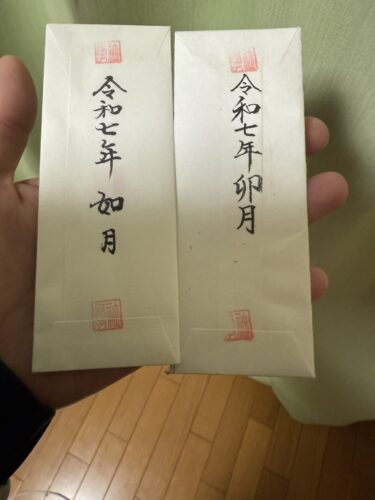 令和七年 如月
令和七年 卯月